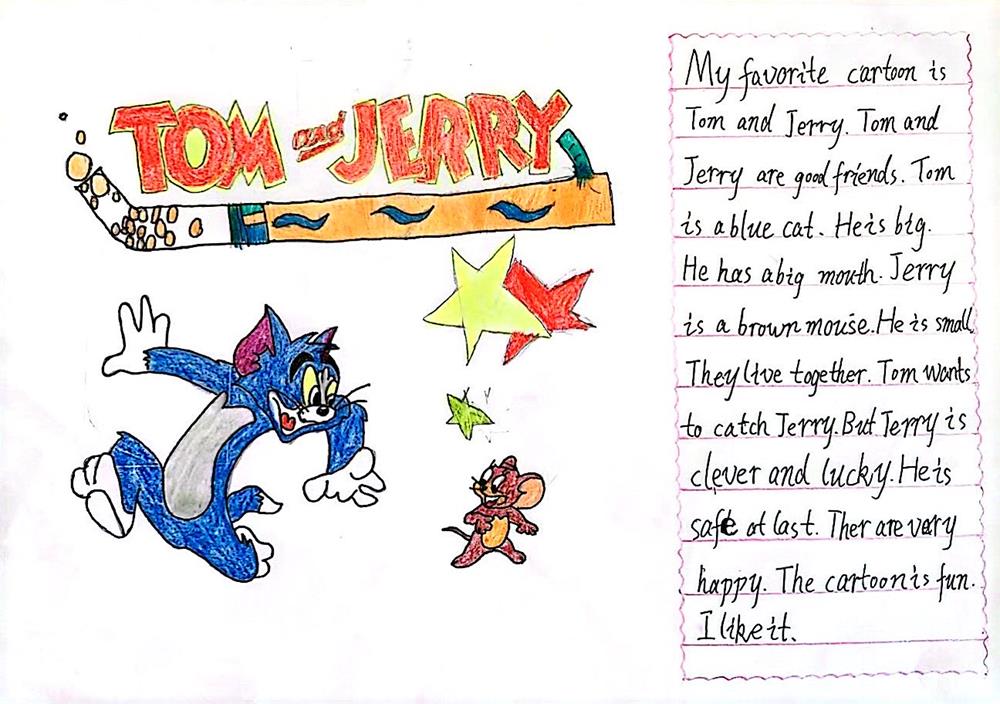 TOM and JERRY
My favorite cartoon is
Tom and Jerry. Tom and
Jerry are good friends. Tom
is a blue cat. He is big.
He has a big mouth. Jerry
is a brown mouse. He is small.
They live together. Tom wants
to catch Jerry. But Jerry is
clever and lucky. He is
safe at last. Ther are very
happy. The cartoon is fun.
I like it.